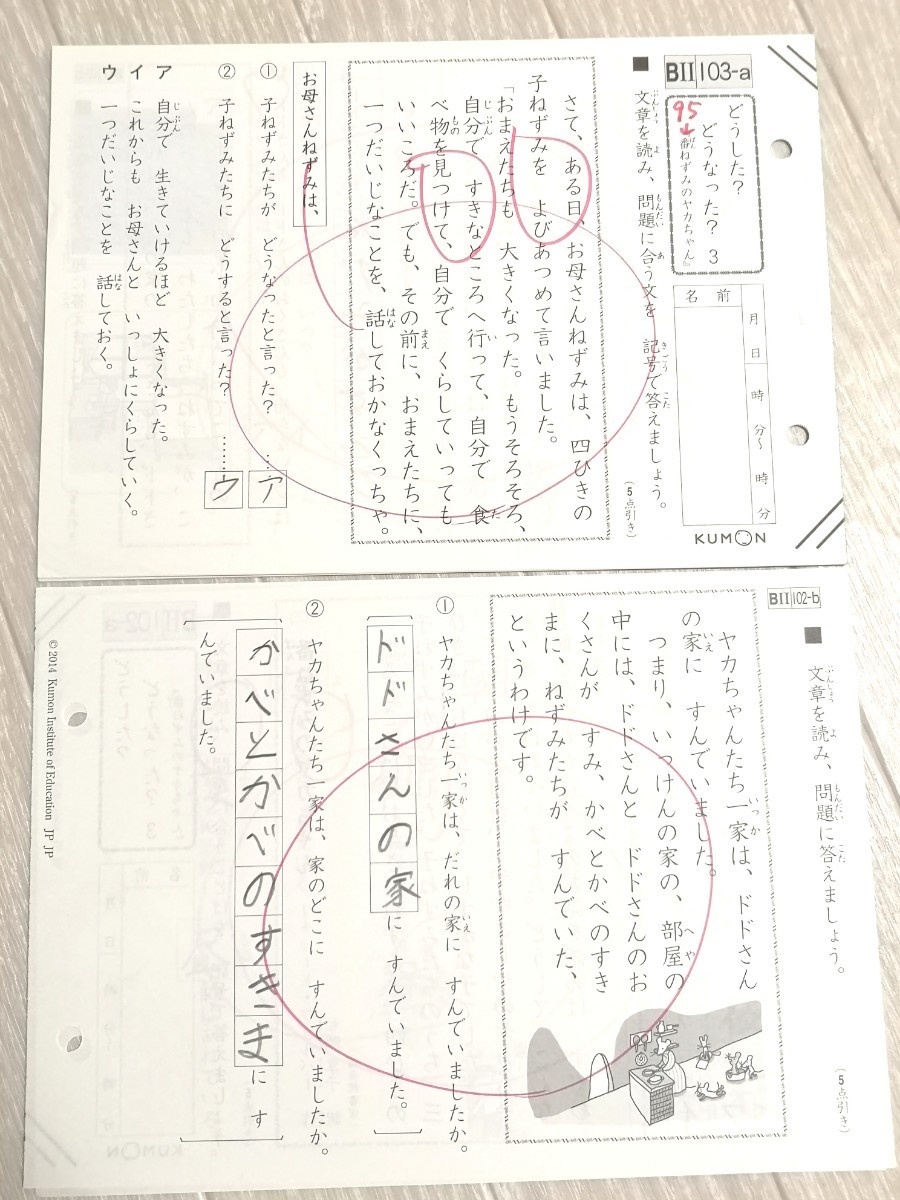 BⅡ 103-a
どうした?
どうなった? 3
95
番ねずみのヤカちゃん』
名前
月 日 時 分〜 時 分
KUMON
■ 文章を読み、問題に合う文を 記号で答えましょう。
(5点引き)
さて、ある日、お母さんねずみは、四ひきの
子ねずみを よびあつめて言いました。
「おまえたちも 大きくなった。もうそろそろ、
自分で すきなところへ行って、自分で 食
べ物を見つけて、自分で くらしていっても
いいころだ。でも、その前に、おまえたちに、
一つだいじなことを、話しておかなくっちゃ。
お母さんねずみは、
① 子ねずみたちが どうなったと言った? … ア
② 子ねずみたちに どうすると言った? …… ウ
ア 自分で 生きていけるほど 大きくなった。
イ これからも お母さんと いっしょにくらしていく。
ウ 一つだいじなことを 話しておく。
BⅡ 102-b
■ 文章を読み、問題に答えましょう。
(5点引き)
ヤカちゃんたち一家は、ドドさん
の家に すんでいました。
つまり、いっけんの家の、部屋の
中には、ドドさんと ドドさんのお
くさんが すみ、かべとかべのすき
まに、ねずみたちが すんでいた、
というわけです。
① ヤカちゃんたち一家は、だれの家に すんでいましたか。
ドドさんの家に すんでいました。
② ヤカちゃんたち一家は、家のどこに すんでいましたか。
かべとかべのすきまに す
んでいました。
© 2014 Kumon Institute of Education JP JP